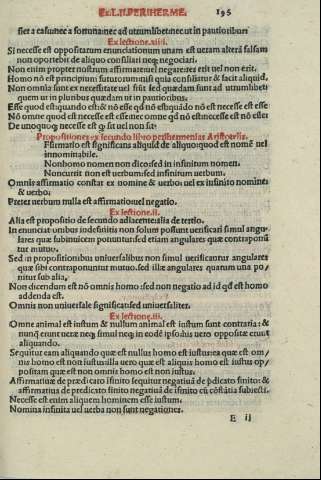 EX.L.II.PERIHERME. 195
fiet a casu nec a fortuna nec ad utrumlibet nec ut in pautioribus
Ex lectione.xiiii.
Si necesse est oppositarum enunciationum unam esse ueram altera falsam
non oportebit de aliquo consiliari neq; negociari.
Non enim propter nostrum affirmare uel negare res erit uel non erit.
Homo nõ est principium futurorum nisi quia consiliatur & facit aliquid.
Non omnia sunt ex necessitate uel fiũt sed quædam sunt ad utrumlibet:
quem ut in pluribus quædam ut in pautioribus.
Esse quod est quando est & nõ esse qd nõ est quãdo nõ est necesse est esse
Nõ omne quod est necesse est esse nec omne qd nõ est necesse est nõ esse
De unoquoq; necesse est q sit uel non sit.
Propositiones ex secundo libro perihermenias Aristotelis.
Ffirmatio est significans aliquid de aliquo: quod est nomen uel
innominabile.
Nonhomo nomen non dico: sed in infinitum nomen.
Noncurrit non est uerbum: sed infinitum uerbum.
Omnis affirmatio constat ex nomine & uerbo: uel ex infinito nomine
& uerbo.
Preter uerbum nulla est affirmatio uel negatio.
Ex lectione.ii.
Alia est propositio de secundo adiacente alia de tertio.
In enunciationibus indefinitis non solum possunt uerificari simul angu-
lares quæ subinuicem ponuntur: sed etiam angulares quæ contraponũ
tur mutuo.
Sed in propositionibus uniuersalibus non simul uerificantur angulares
quæ sibi contraponuntur mutuo. sed illæ angulares quarum una po/
nitur sub alia.
Non dicendum est nõ omnis homo: sed non negatio ad id qd est homo
addenda est.
Omnis non uniuersale significat: sed uniuersaliter.
Ex lectione.iii.
Omne animal est iustum & nullum animal est iustum sunt contraria: &
nunq̃ erunt neræ neq; simul neq; in eodẽ ipso: his uero oppositæ erunt
aliquando.
Sequitur eam aliquando quæ est nullus homo est iustus: ea quæ est om/
nis homo est non iustus: illa uero quæ est aliquis homo est iustus op/
positam quæ est non omnis homo est non iustus.
Affirmatiuæ de prædicato ĩfinito sequitur negatiuã de p̃dicato finito: &
affirmatiua de predicato finito negatiuã de ĩfinito cũ cõstãtia subiecti.
Necesse est enim aliquem hominem esse iustum.
Nomina infinita uel uerba non sunt negationes.
E ii